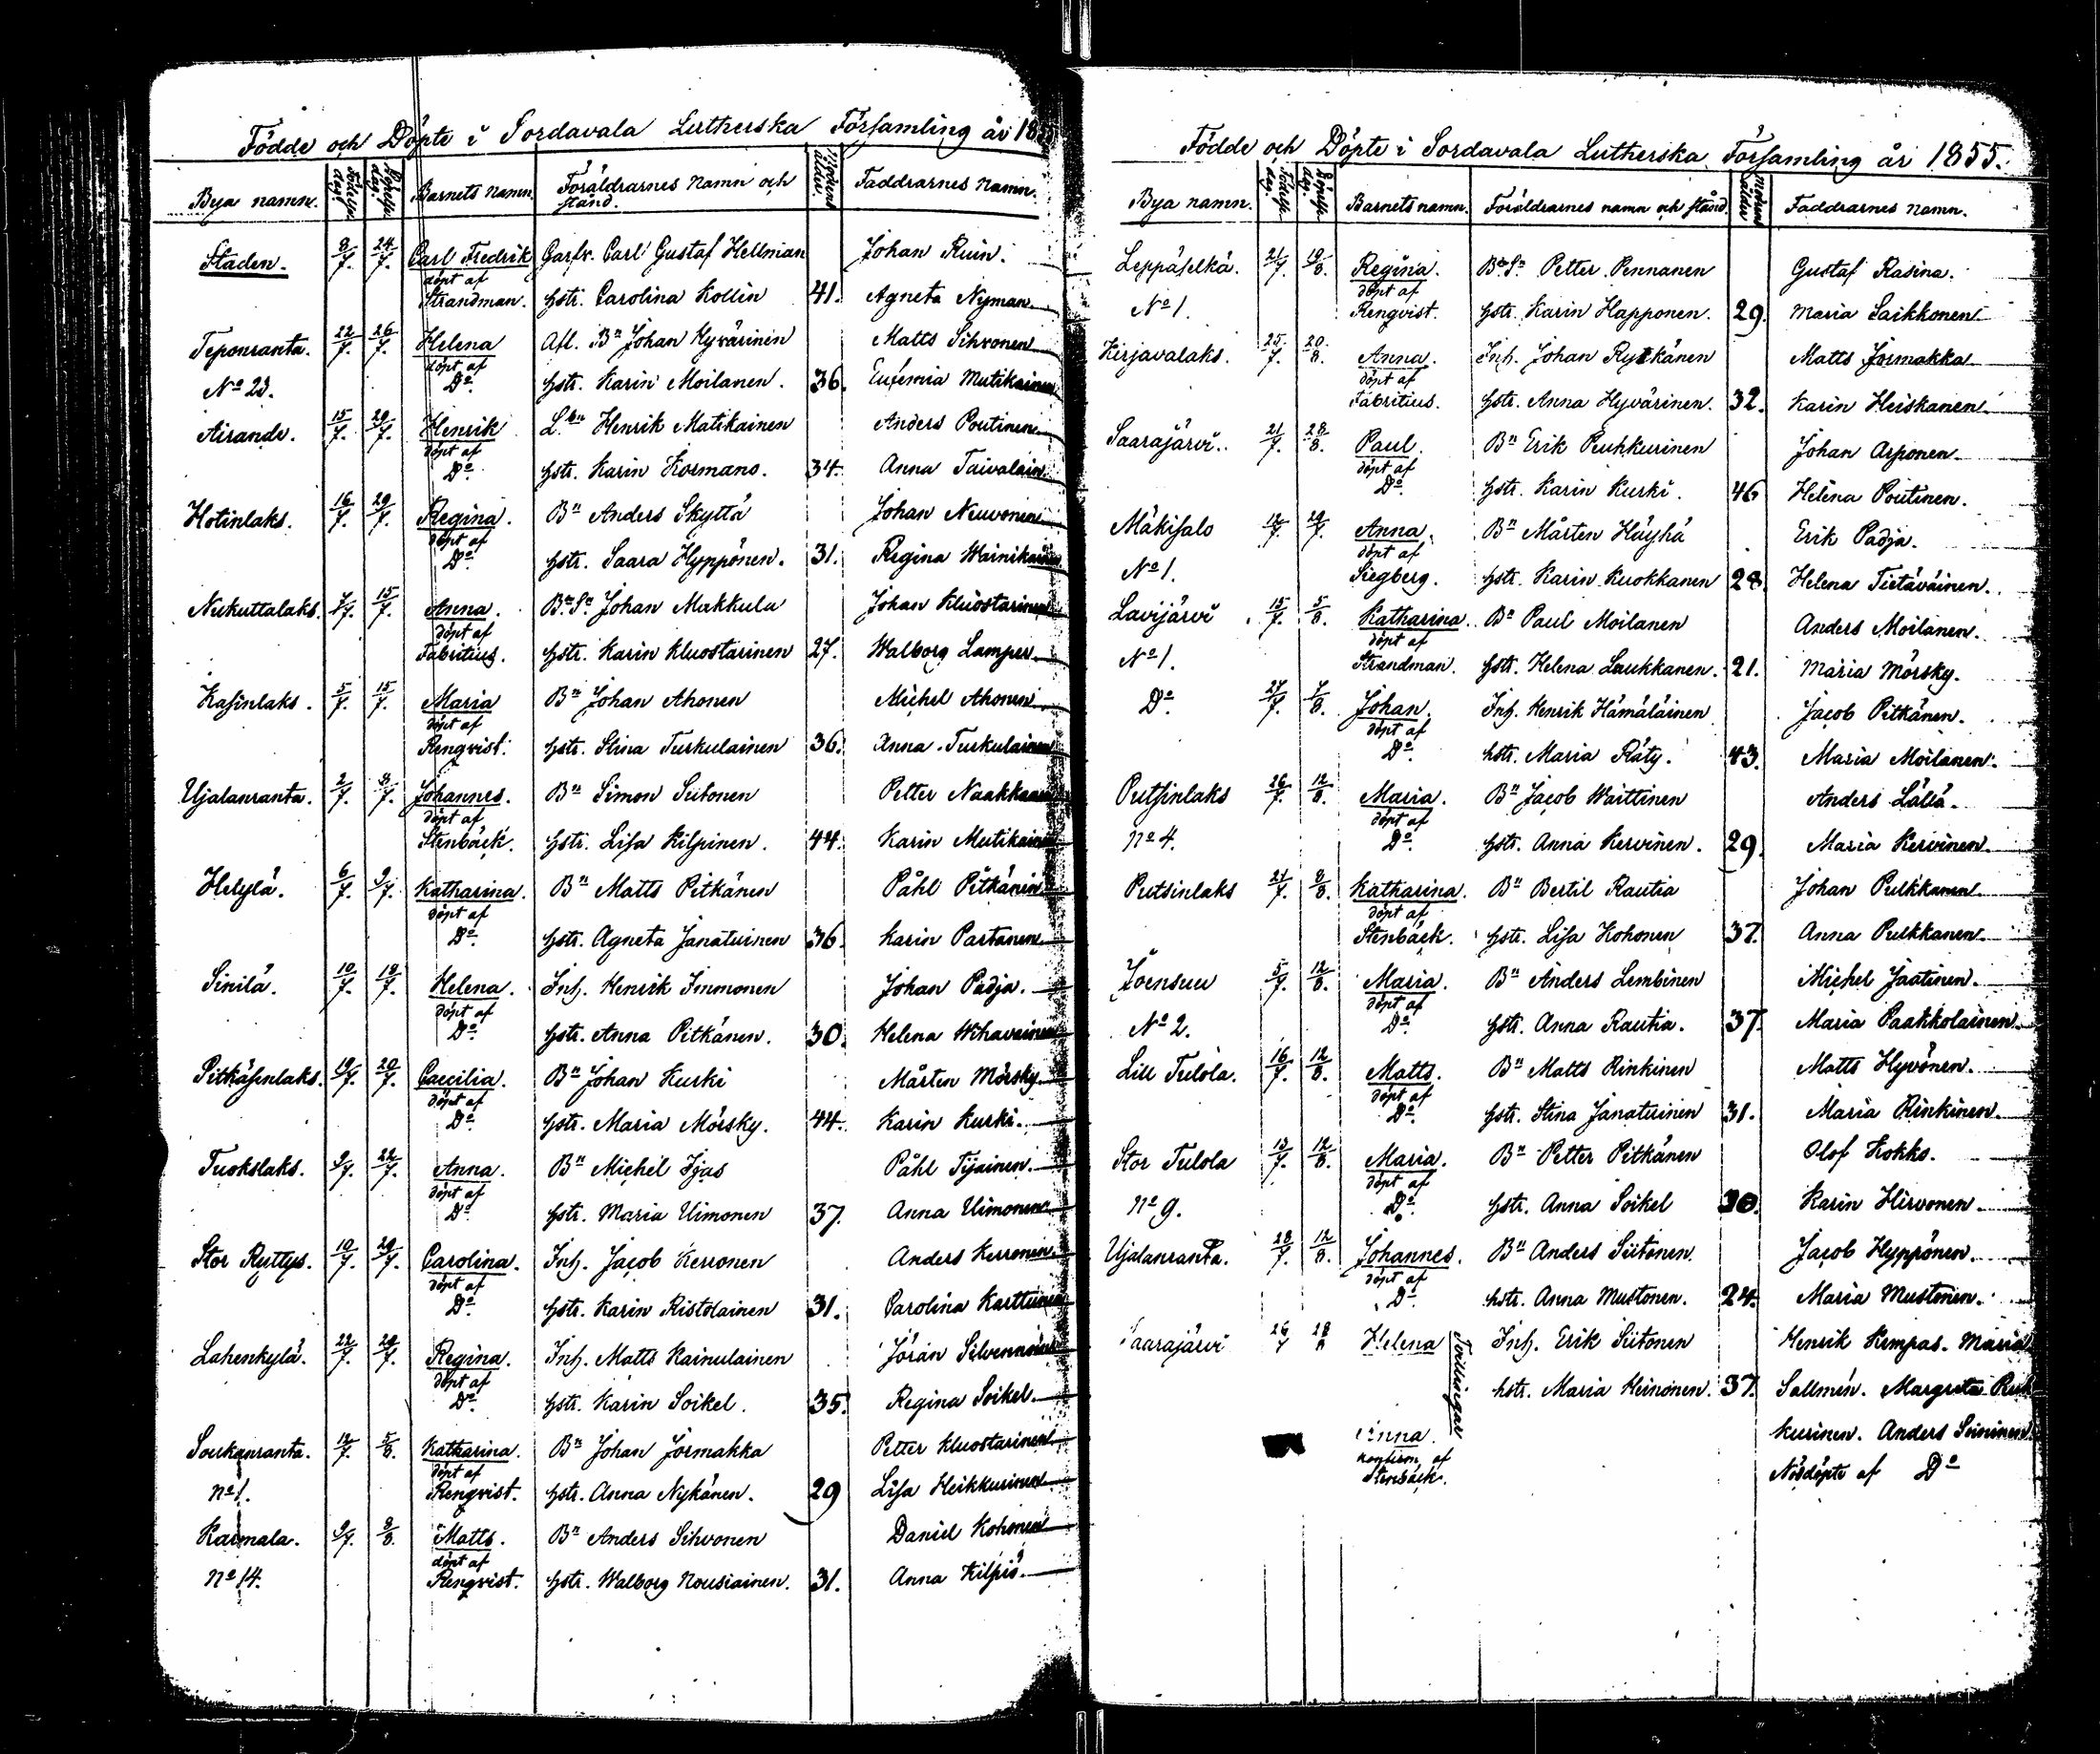 Födde och Döpte i Sordavala Lutherska Församling år 185
Bya namn. Födelse dag. Döpelse dag. Barnets namn. Föräldrarnes namn och stånd. Modrens ålder. Faddrarnes namn.
Staden. 8/7. 24/7. Carl Fredrik Garfv. Carl Gustaf Hellman Johan Ruin.
döpt af
Strandman. hstr. Carolina Kollin 41. Agneta Nyman.
Teponranta. 22/7. 26/7. Helena Afl. Bn Johan Hyvärinen Matts Sihvonen
döpt af
No 23. Do hstr. Karin Moilanen. 36. Eufemia Mutikainen
Airando. 15/7. 29/7. Henrik L.bn Henrik Matikainen Anders Poutinen
döpt af
Do hstr. Karin Kormano. 34. Anna Taivalain
Hotinlaks. 16/7. 29/7. Regina. Bn Anders Skyttä Johan Neuvonen
döpt af
Do hstr. Saara Hyppönen. 31. Regina Wainikainen
Nukuttalaks. 7/7. 15/7. Anna. Bn Sn Johan Makkula Johan Kluostarinen
döpt af
Fabritius. hstr. Karin Kluostarinen 27. Walborg Lamper.
Kasinlaks. 5/7. 15/7. Maria Bn Johan Ahonen Michel Ahonen
döpt af
Renqvist. hstr. Stina Turkulainen 36. Anna Turkulainen
Ujalanranta. 2/7. 8/7. Johannes. Bn Simon Siitonen Petter Naakkaanen
döpt af
Stenbäck. hstr. Lisa Kilpinen. 44. Karin Mutikainen
Helylä. 6/7. 9/7. Katharina. Bn Matts Pitkänen Påhl Pitkänen
döpt af
Do hstr. Agneta Janatuinen 36. Karin Partanen
Sinilä. 10/7. 18/7. Helena. Inh. Henrik Immonen Johan Padja.
döpt af
Do hstr. Anna Pitkänen. 30. Helena Wihavainen
Pitkäsenlaks. 19/7. 20/7. Caecilia. Bn Johan Kurki Mårten Mörsky
döpt af
Do hstr. Maria Mörsky. 44. Karin Kurki.
Tuokslaks. 9/7. 22/7. Anna. Bn Michel Ijas Påhl Tijainen.
döpt af
Do hstr. Maria Uimonen 37. Anna Uimonen
Stor Ryttys. 10/7. 29/7. Carolina. Inh. Jacob Kerronen Anders Kerronen
döpt af
Do hstr. Karin Ristolainen 31. Carolina Karttunen
Lahenkylä. 22/7. 29/7. Regina. Inh. Matts Kainulainen Jöran Silvennoinen
döpt af
Do hstr. Karin Soikel. 35. Regina Soikel.
Soukanranta. 12/7. 5/8. Katharina. Bn Johan Jormakka Petter Kluostarinen
döpt af
No 1. Renqvist. hstr. Anna Nykänen. 29 Lisa Heikkurinen
Karmala. 9/7. 8/8. Matts. Bn Anders Sihvonen Daniel Kohonen
döpt af
No 14. Renqvist. hstr. Walborg Nousiainen. 31. Anna Kilpiö.
Födde och Döpte i Sordavala Lutherska Församling år 1855.
Bya namn. Födelse dag. Döpelse dag. Barnets namn. Föräldrarnes namn och stånd. Modrens ålder Faddrarnes namn.
Leppäselkä. 21/7. 19/8. Regina. Bn Sn Petter Pennanen Gustaf Rasina.
döpt af
No 1. Renqvist. hstr. Karin Happonen. 29. Maria Saikkonen.
Kirjavalaks. 25/7. 20/8. Anna. Inh. Johan Rytkänen Matts Jormakka
döpt af
Fabritius. hstr. Anna Hyvärinen. 32. Karin Heiskanen.
Saarajärvi. 21/7. 28/8. Paul. Bn Erik Puhkurinen Johan Arponen.
döpt af
Do hstr. Karin Kurki. 46 Helena Poutinen.
Mäkisalo 12/7. 29/7. Anna. Bn Mårten Häyhä Erik Padja.
döpt af
No 1. Siegberg. hstr. Karin Kuokkanen 28. Helena Tietäväinen.
Lavijärvi 15/7. 5/8. Katharina. Bn Paul Moilanen Anders Moilanen.
döpt af
No 1. Strandman. hstr. Helena Laukkanen. 21. Maria Mörsky.
Do 27/7. 7/8. Johan. Inh. Henrik Hämäläinen Jacob Pitkänen.
döpt af
Do hstr. Maria Räty. 43. Maria Moilanen.
Putsinlaks 26/7. 12/8. Maria. Bn Jacob Waittinen Anders Lällä.
döpt af
No 4. Do hstr. Anna Kervinen. 29. Maria Kervinen.
Putsinlaks 21/7. 8/8. Katharina. Bn Bertil Rautia Johan Pulkkanen.
döpt af
Stenbäck. hstr. Lisa Kohonen 37. Anna Pulkkanen.
Joensuu 5/7. 12/8. Maria. Bn Anders Lembinen Michel Jaatinen.
döpt af
No 2. Do hstr. Anna Rautia. 37. Maria Paakkolainen.
Lill Tulola. 16/7. 12/8. Matts. Bn Matts Rinkinen Matts Hyvönen.
döpt af
Do hstr. Stina Janatuinen 31. Maria Rinkinen.
Stor Tulola 13/7. 12/8. Maria. Bn Petter Pitkänen Olof Kokko.
döpt af
No 9. Do hstr. Anna Soikel 30. Karin Hirvonen.
Ujalanranta. 28/7. 12/8. Johannes. Bn Anders Siitonen. Jacob Hyppönen.
döpt af
Do hstr. Anna Mustonen. 24. Maria Mustonen.
Saarajärvi 26/7 28/8 Helena Tvillingar Inh. Erik Siitonen Henrik Kempas. Maria
hstr. Maria Heinonen. 37. Sallmén. Margreta Puh
Anna. kurinen. Anders Soininen
konfirm. af
Stenbäck. Nöddöpte af Do